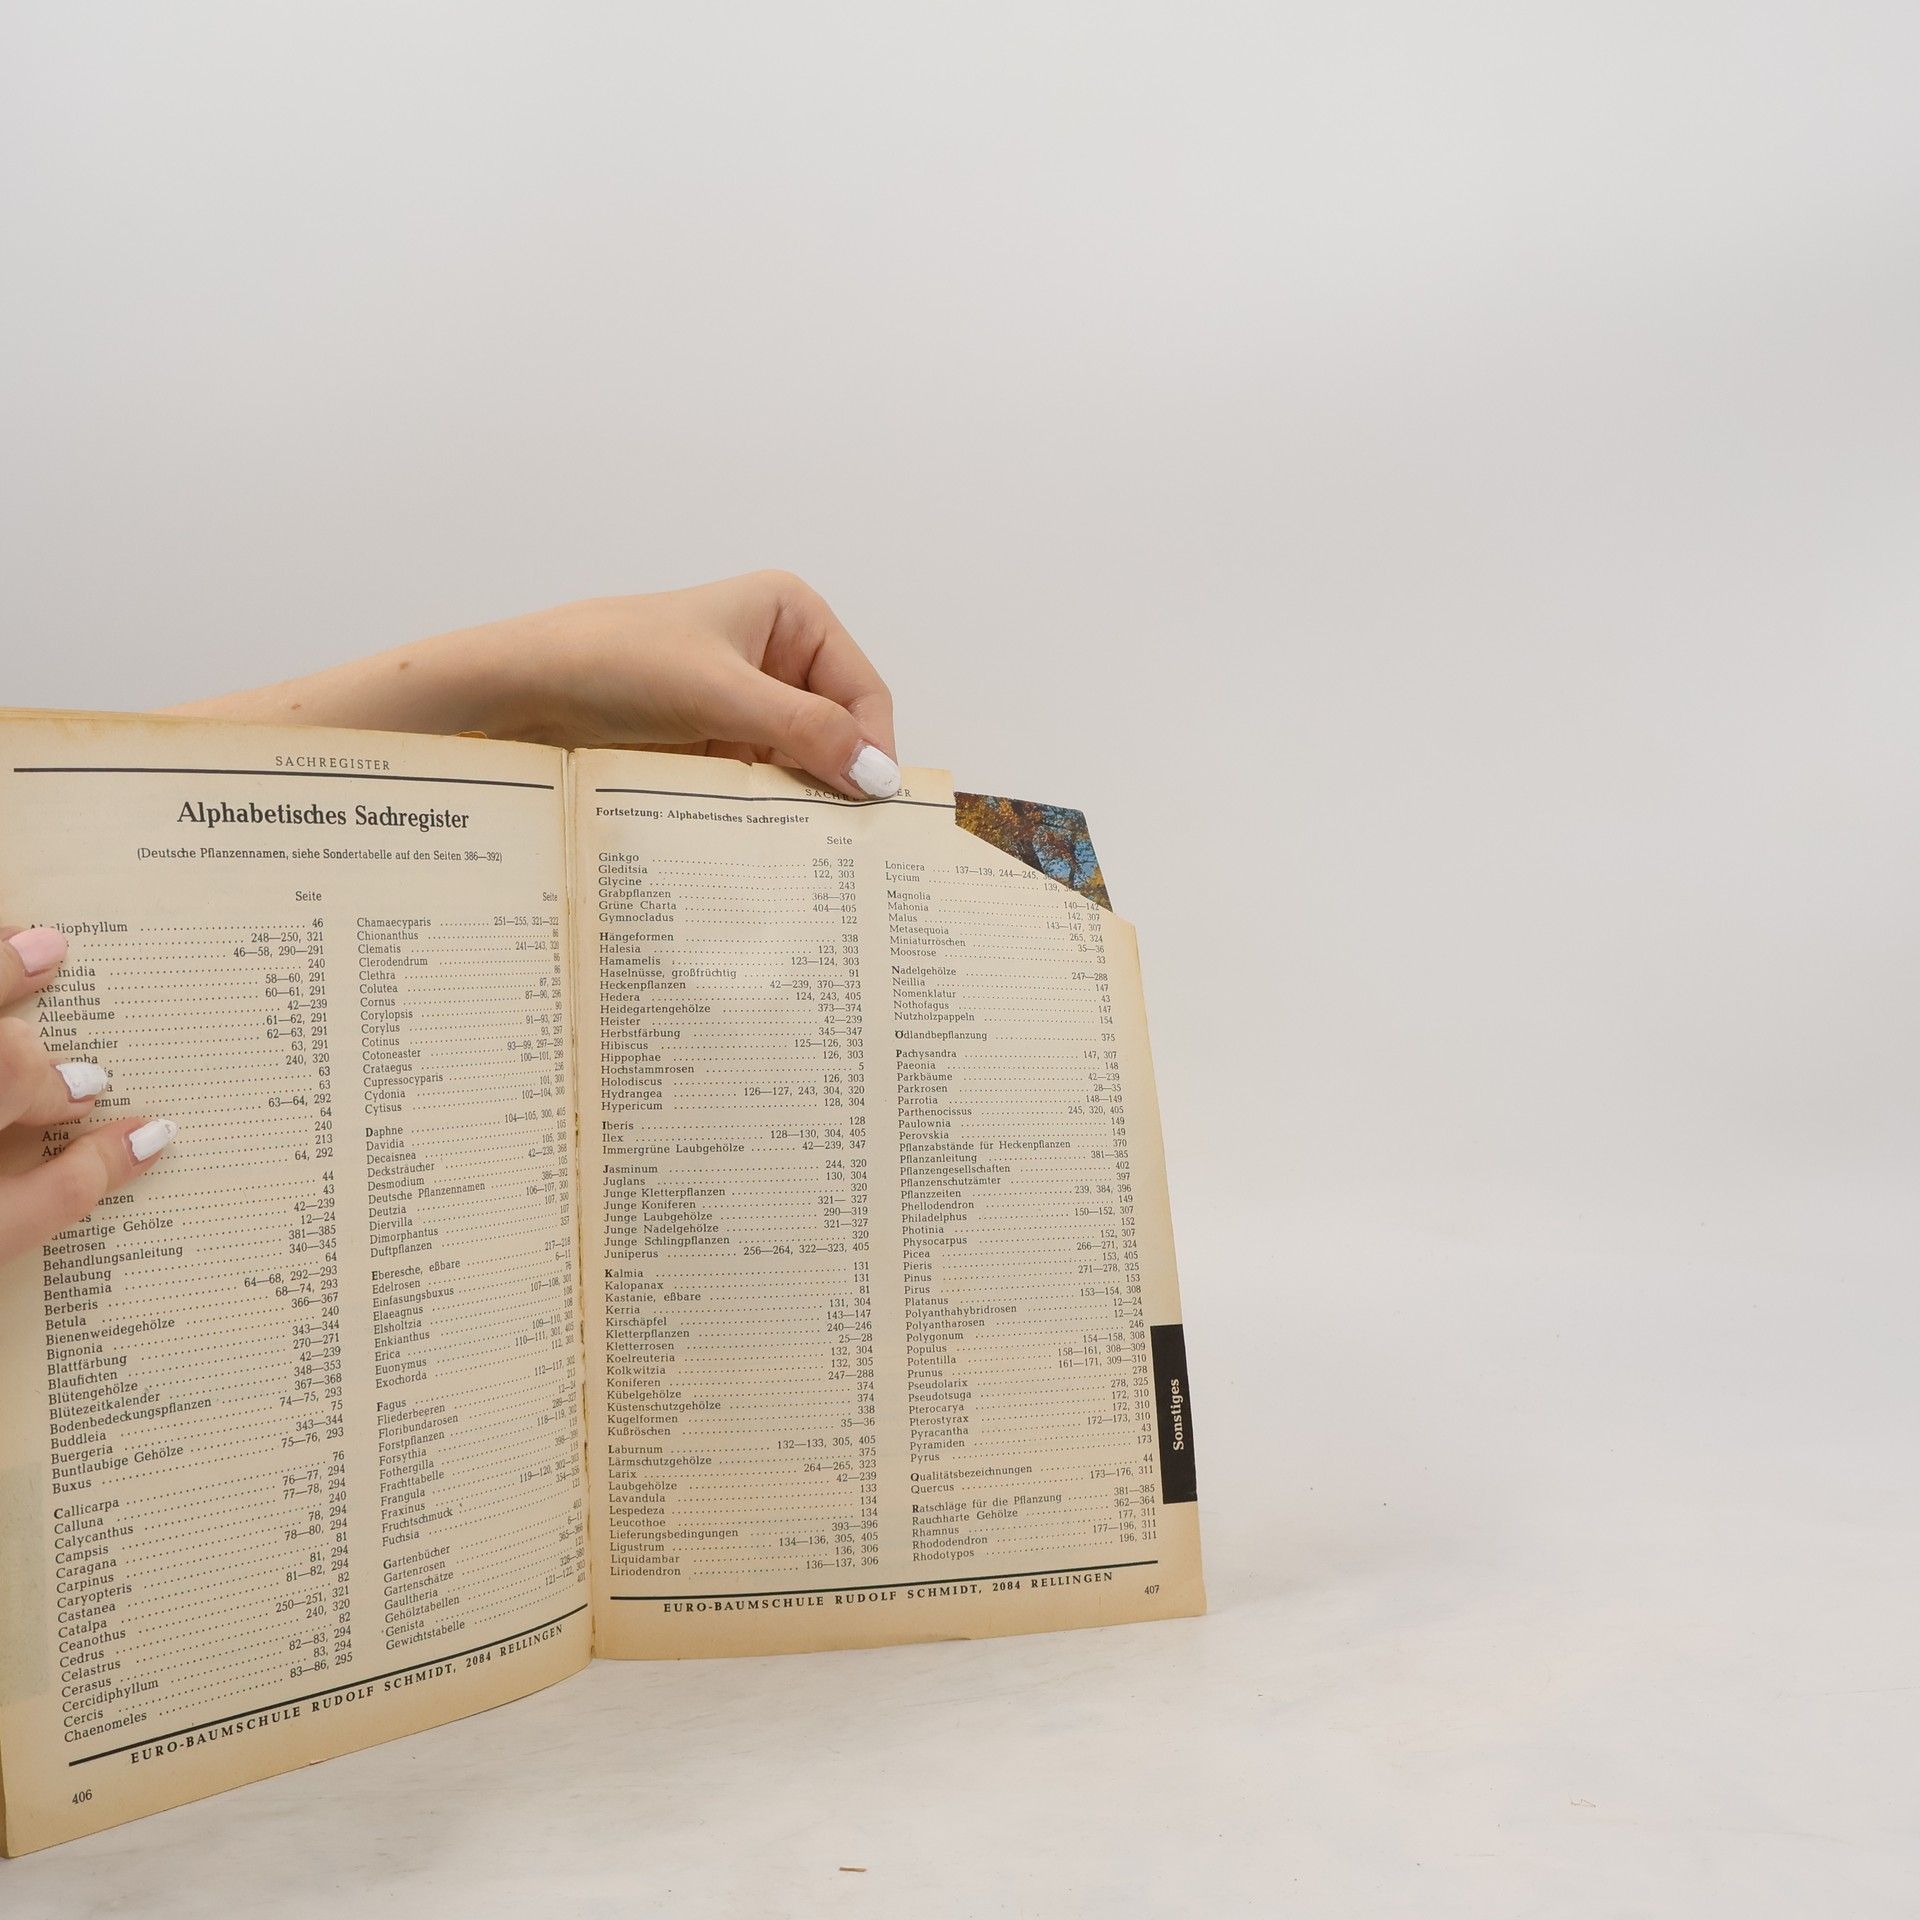 SACHREGISTER
Alphabetisches Sachregister
(Deutsche Pflanzennamen, siehe Sondertabelle auf den Seiten 386—392)
Seite
46
248—250, 321
46—58, 290—291
240
Aesculus 58—60, 291
Ailanthus 60—61, 291
Alleebäume 42—239
Alnus 61—62, 291
Amelanchier 62—63, 291
63, 291
240, 320
63
63
63—64, 292
64
Aria 240
213
64, 292
44
43
Gehölze 42—239
Beetrosen 12—24
Behandlungsanleitung 381—385
Belaubung 340—345
Benthamia 64
Berberis 64—68, 292—293
Betula 68—74, 293
Bienenweidegehölze 366—367
Bignonia 240
Blattfärbung 343—344
Blaufichten 270—271
Blütengehölze 42—239
Blütezeitkalender 348—353
Bodenbedeckungspflanzen 367—368
Buddleia 74—75, 293
Buergeria 75
Buntlaubige Gehölze 343—344
Buxus 75—76, 293
Callicarpa 76
Calluna 76—77, 294
Calycanthus 77—78, 294
Campsis 240
Caragana 78, 294
Carpinus 78—80, 294
Caryopteris 81
Castanea 81, 294
Catalpa 81—82, 294
Ceanothus 82
Cedrus 250—251, 321
Celastrus 240, 320
Cerasus 82
Cercidiphyllum 82—83, 294
Cercis 83, 294
Chaenomeles 83—86, 295
Seite
Chamaecyparis 251—255, 321—322
Chionanthus 86
Clematis 241—243, 320
Clerodendrum 86
Clethra 86
Colutea 87, 295
Cornus 87—90, 296
Corylopsis 90
Corylus 91—93, 297
Cotinus 93, 297
Cotoneaster 93—99, 297—299
Crataegus 100—101, 299
Cupressocyparis 256
Cydonia 101, 300
Cytisus 102—104, 300
Daphne 104—105, 300, 405
Davidia 105
Decaisnea 105, 300
Decksträucher 42—239, 368
Desmodium 105
Deutsche Pflanzennamen 386—392
Deutzia 106—107, 300
Diervilla 107, 300
Dimorphantus 107
Duftpflanzen 357
Eberesche, eßbare 217—218
Edelrosen 6—11
Einfasungsbuxus 76
Elaeagnus 107—108, 301
Elsholtzia 108
Enkianthus 108
Erica 109—110, 301
Euonymus 110—111, 301, 405
Exochorda 112, 301
Fagus 112—117, 302
Fliederbeeren
Floribundarosen 12—24
Forstpflanzen
Forsythia 118—119, 302
Fothergilla 119
Frachttabelle
Frangula 119
Fraxinus 119—120, 302—303
Fruchtschmuck
Fuchsia 121
Gartenbücher 403
Gartenrosen 6—11
Gartenschätze 365—366
Gaultheria 121
Gehölztabellen
Genista 121—122, 303
Gewichtstabelle 401
EURO-BAUMSCHULE RUDOLF SCHMIDT, 2084 RELLINGEN
406
Fortsetzung: Alphabetisches Sachregister
Seite
Ginkgo 256, 322
Gleditsia 122, 303
Glycine 243
Grabpflanzen 368—370
Grüne Charta 404—405
Gymnocladus 122
Hängeformen 338
Halesia 123, 303
Hamamelis 123—124, 303
Haselnüsse, großfrüchtig 91
Heckenpflanzen 42—239, 370—373
Hedera 124, 243, 405
Heidegartengehölze 373—374
Heister 42—239
Herbstfärbung 345—347
Hibiscus 125—126, 303
Hippophae 126, 303
Hochstammrosen 5
Holodiscus 126, 303
Hydrangea 126—127, 243, 304, 320
Hypericum 128, 304
Iberis 128
Ilex 128—130, 304, 405
Immergrüne Laubgehölze 42—239, 347
Jasminum 244, 320
Juglans 130, 304
Junge Kletterpflanzen 320
Junge Koniferen 321— 327
Junge Laubgehölze 290—319
Junge Nadelgehölze 321—327
Junge Schlingpflanzen 320
Juniperus 256—264, 322—323, 405
Kalmia 131
Kalopanax 131
Kastanie, eßbare 81
Kerria 131, 304
Kirschäpfel 143—147
Kletterpflanzen 240—246
Kletterrosen 25—28
Koelreuteria 132, 304
Kolkwitzia 132, 305
Koniferen 247—288
Kübelgehölze 374
Küstenschutzgehölze 374
Kugelformen 338
Kußröschen 35—36
Laburnum 132—133, 305, 405
Lärmschutzgehölze 375
Larix 264—265, 323
Laubgehölze 42—239
Lavandula 133
Lespedeza 134
Leucothoe 134
Lieferungsbedingungen 393—396
Ligustrum 134—136, 305, 405
Liquidambar 136, 306
Liriodendron 136—137, 306
Lonicera 137—139, 244—245,
Lycium 139,
Magnolia 140—142
Mahonia 142, 307
Malus 143—147, 307
Metasequoia 265, 324
Miniaturröschen 35—36
Moosrose 33
Nadelgehölze 247—288
Neillia 147
Nomenklatur 43
Nothofagus 147
Nutzholzpappeln 154
Ödlandbepflanzung 375
Pachysandra 147, 307
Paeonia 148
Parkbäume 42—239
Parkrosen 28—35
Parrotia 148—149
Parthenocissus 245, 320, 405
Paulownia 149
Perovskia 149
Pflanzabstände für Heckenpflanzen 370
Pflanzanleitung 381—385
Pflanzengesellschaften 402
Pflanzenschutzämter 397
Pflanzzeiten 239, 384, 396
Phellodendron 149
Philadelphus 150—152, 307
Photinia 152
Physocarpus 152, 307
Picea 266—271, 324
Pieris 153, 405
Pinus 271—278, 325
Pirus 153
Platanus 153—154, 308
Polyanthahybridrosen 12—24
Polyantharosen 12—24
Polygonum 246
Populus 154—158, 308
Potentilla 158—161, 308—309
Prunus 161—171, 309—310
Pseudolarix 278
Pseudotsuga 278, 325
Pterocarya 172, 310
Pterostyrax 172, 310
Pyracantha 172—173, 310
Pyramiden 43
Pyrus 173
Qualitätsbezeichnungen 44
Quercus 173—176, 311
Ratschläge für die Pflanzung 381—385
Rauchharte Gehölze 362—364
Rhamnus 177, 311
Rhododendron 177—196, 311
Rhodotypos 196, 311
Sonstiges
EURO-BAUMSCHULE RUDOLF SCHMIDT, 2084 RELLINGEN
407